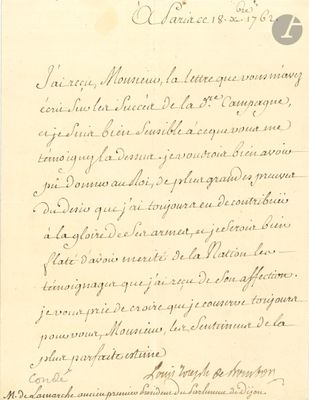 A Paris ce 18. xbre 1762
J'ai reçu, Monsieur, la lettre que vous m'avez
écrit sur les Succès de la Dre Campagne,
et je Suis bien Sensible à ce que vous me
témoignez la dessus. je voudrois bien avoir
pû donner au Roi, de plus grandes preuves
du desir que j'ai toujours eu de contribuer
à la gloire de Ses armes, et je Serois bien
flaté d'avoir merité de la Nation les
témoignages que j'ai reçu de Son affection.
je vous prie de croire que je conserve toujours
pour vous, Monsieur, les Sentimens de la
plus parfaite estime
Louis Joseph de Bourbon
Condé
M. de Lamarche ancien premier President du Parlement de Dijon.